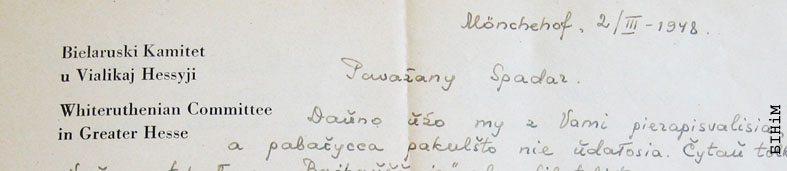 Mönchehof, 2/III-1948.
Bielaruski Kamitet
u Vialikaj Hessyji
Pavažany Spadar.
Whiteruthenian Committee
in Greater Hesse
Daŭno ŭžo my z Vami pierapisvalisia,
a pabačycca pakulšto nie ŭdałosia. Čytaŭ
BIHiM